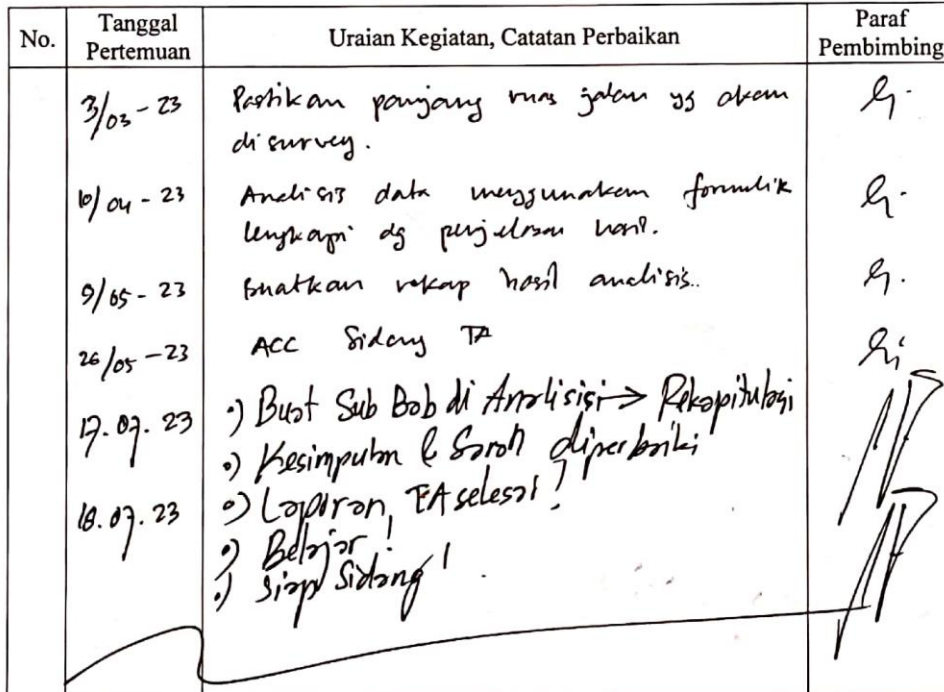 No.
Tanggal
Pertemuan
Uraian Kegiatan, Catatan Perbaikan
Paraf
Pembimbing
3/03 - 23
Pastikan panjang ruas jalan yg akan
di survey.
10/04 - 23
Analisis data menggunakan formulir
lengkapi dg penjelasan hasil.
9/05 - 23
Buatkan rekap hasil analisis..
26/05 - 23
ACC Sidang TA
17.07.23
•) Buat Sub Bab di Analisisi → Rekapitulasi
•) Kesimpulan & Saran diperbaiki
18.07.23
•) Laporan TA selesai!
•) Belajar!
•) Siap Sidang!